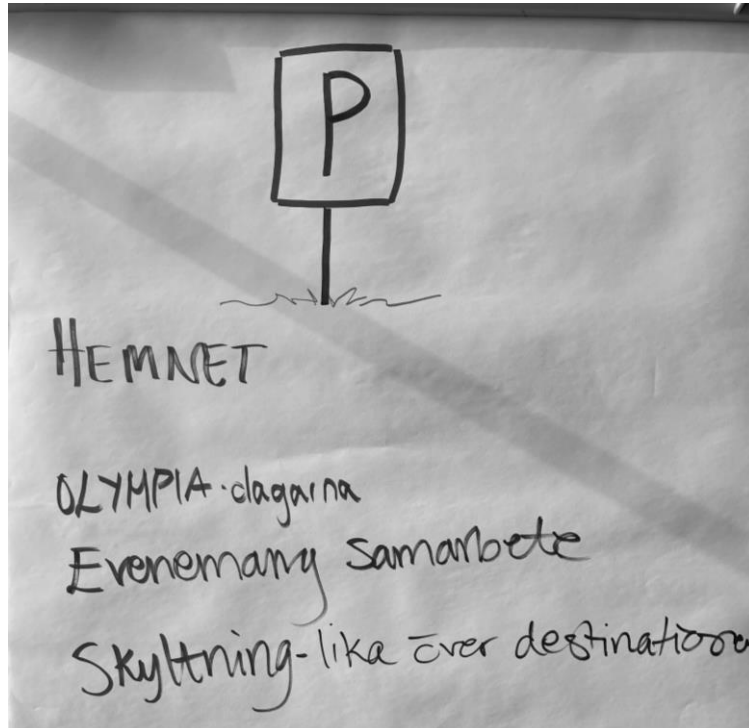 P
HEMNET
OLYMPIA-dagarna
Evenemang samarbete
Skyltning-lika över destination